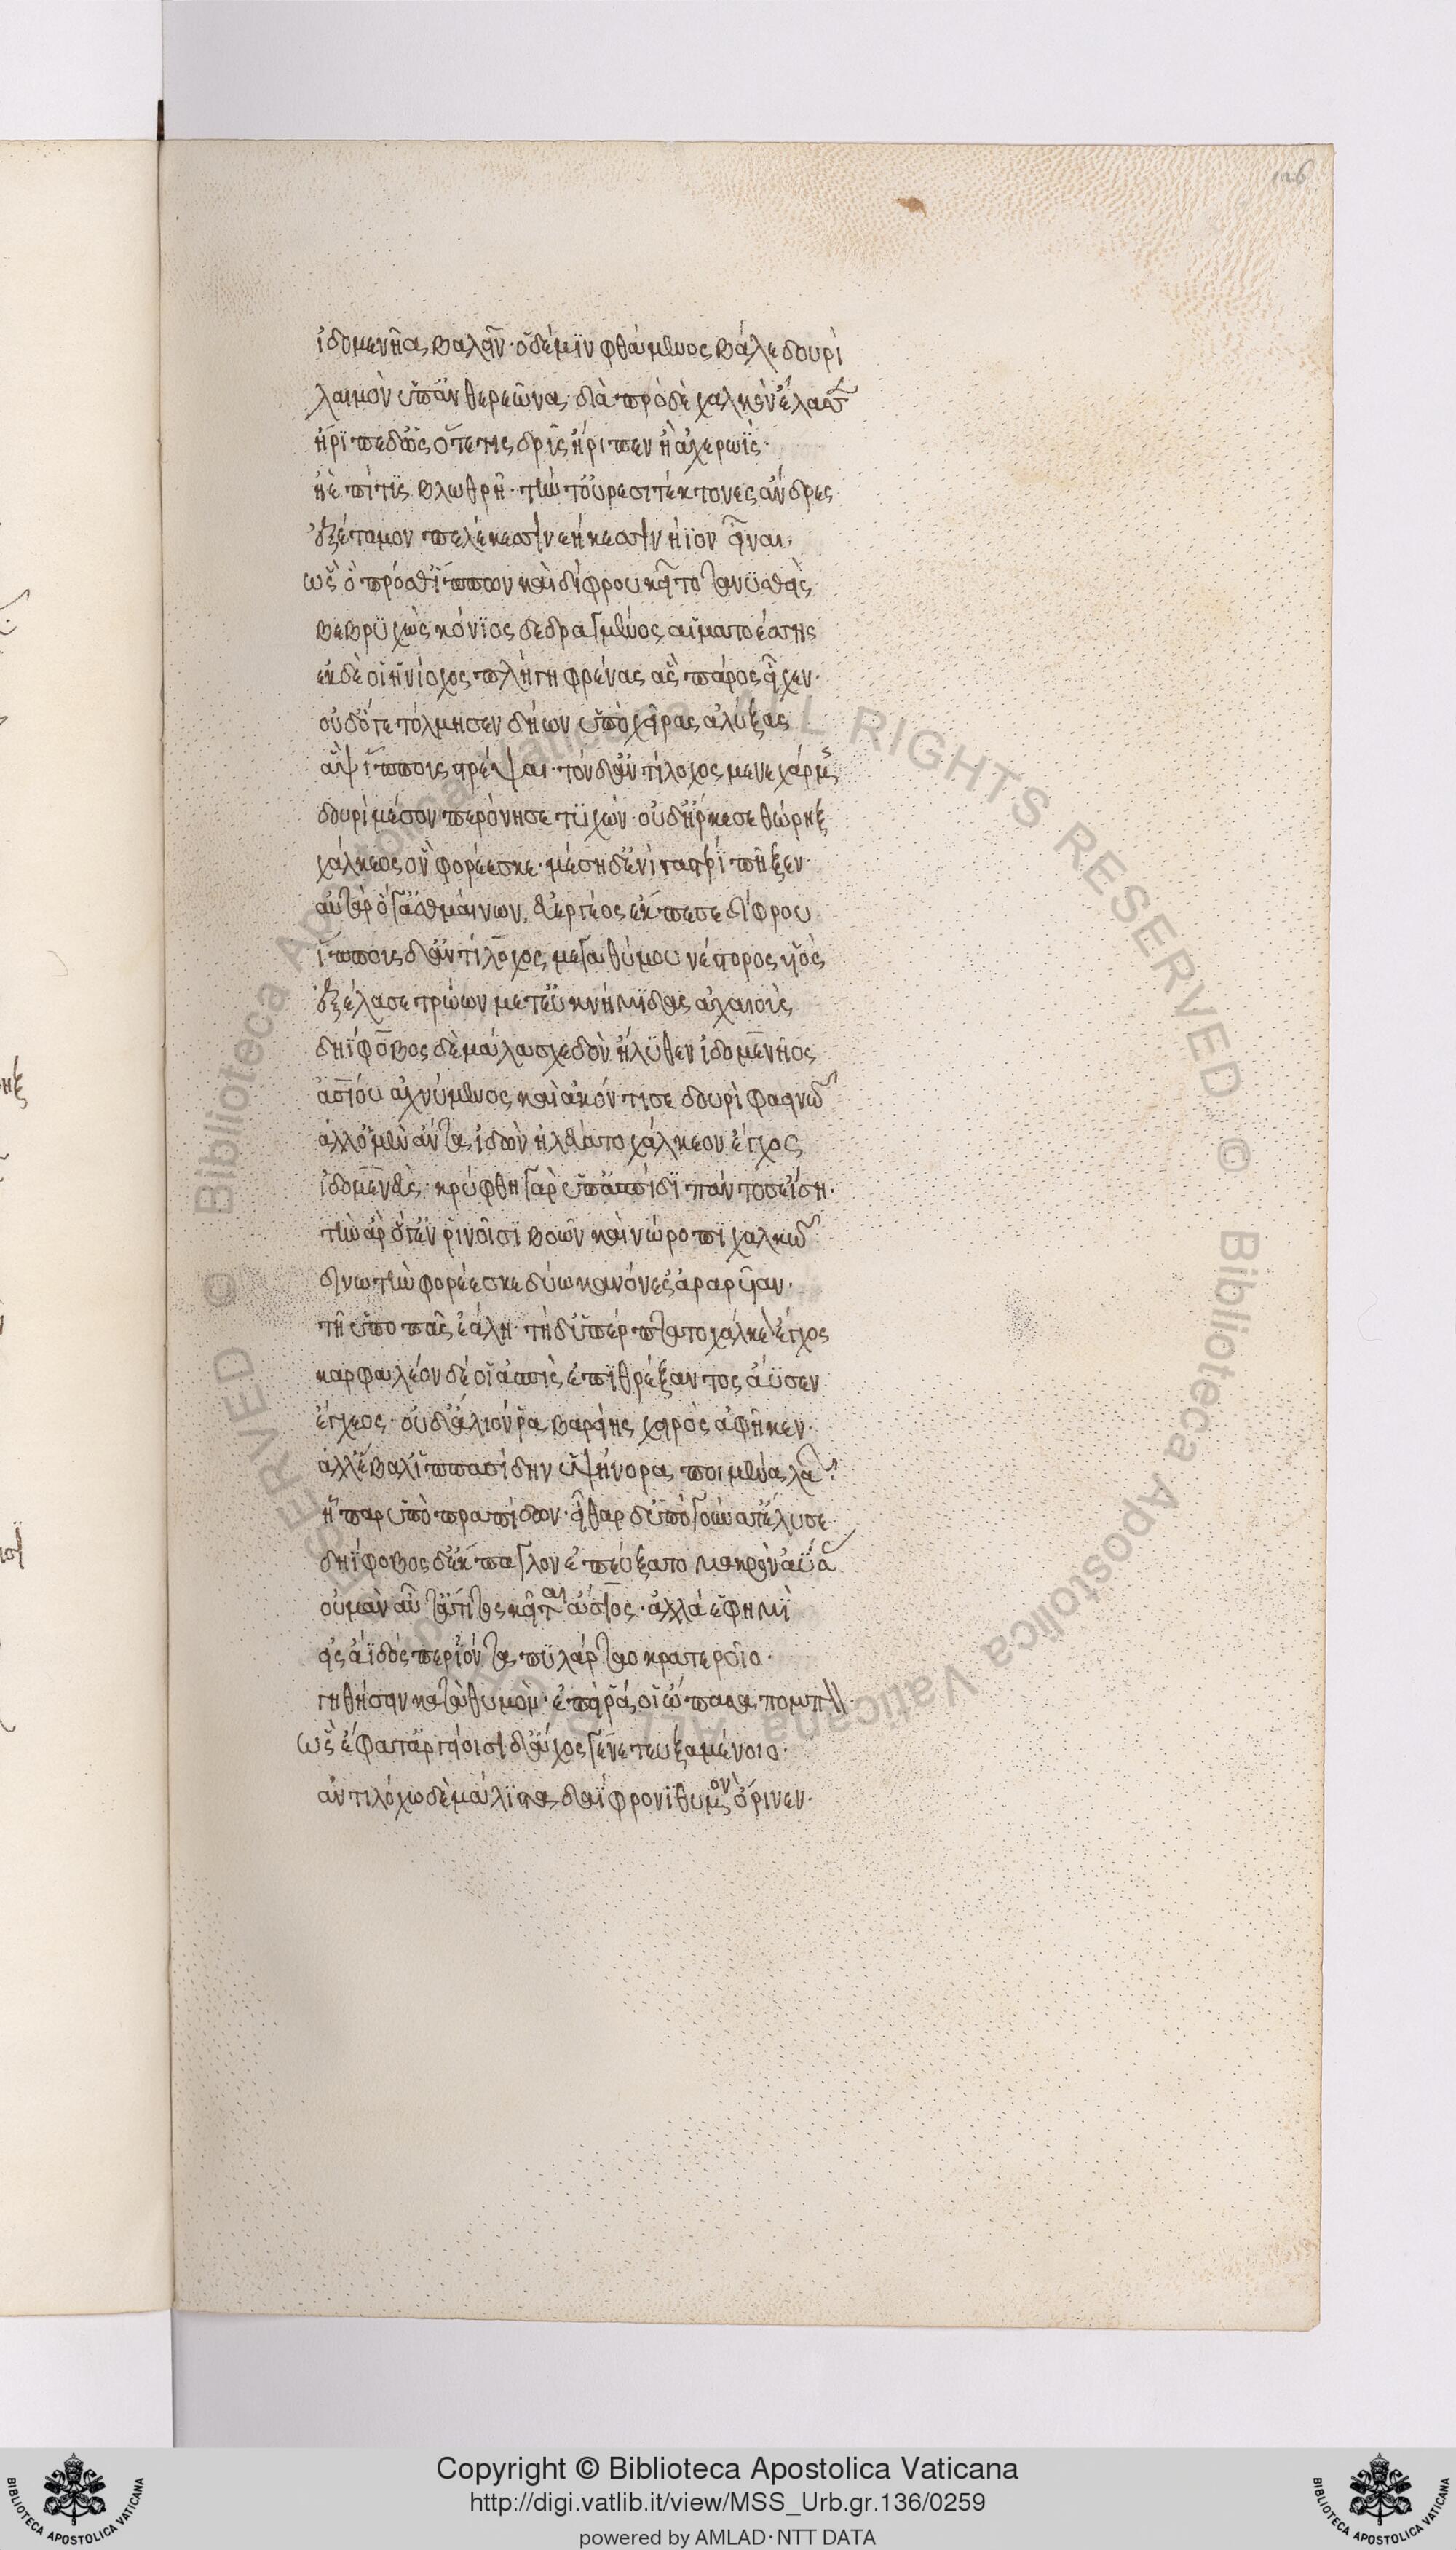 126
ἰδομενῆα βαλεῖν· ὁ δέ μϊν φθάμενος βάλε δουρὶ
λαιμὸν ὑπ' ἀνθερεῶνα, διὰ πρὸ δὲ χαλκὸν ἔλασσε
ἤρϊπε δ' ὡς ὅτε τις δρῦς ἤριπεν ἢ ἀχερωΐς·
ἠὲ πίτϋς βλωθρή· τήν τ' οὔρεσι τέκτονες ἄνδρες
ἐξέταμον πελέκεσσιν νεήκεσιν νήϊον εἶναι·
ὣς ὁ πρόσθ' ἵππων καὶ δίφρου κεῖτο τανϋσθεὶς
βεβρϋχὼς κόνϊος δεδραγμένος αἱματοέσσης
ἐκ δέ οἱ ἡνίοχος πλήγη φρένας ἃς πάρος εἶχεν·
οὐδ' ὅτε τόλμησεν δηίων ὑπὸ χεῖρας ἀλύξας
ἂψ ἵπποις τρέψαι· τὸν δ' ἀντίλοχος μενεχάρμης
δουρὶ μέσον περόνησε τϋχών· οὐδ' ἤρκεσε θώρηξ
χάλκεος ὃν φορέεσκε· μέσῃ δ' ἐνὶ γαστρὶ πῆξεν·
αὐτὰρ ὅ γ' ἀσθμαίνων, εὐεργέος ἔκπεσε δίφρου
ἵππους δ' ἀντίλοχος μεγαθύμου νέστορος υἱὸς
ἐξέλασε τρώων μετ' ἐϋκνήμιδας ἀχαιοὺς
δηΐφοβος δὲ μάλα σχεδὸν ἤλϋθεν ἰδομενῆος
ἀσίου ἀχνύμενος καὶ ἀκόντισε δουρὶ φαεινῷ
ἀλλ' ὁ μὲν ἄντα ἰδὼν ἠλεύατο χάλκεον ἔγχος
ἰδομενεὺς· κρύφθη γὰρ ὑπ' ἀσπίδϊ πάντοσ' ἐίσῃ·
τὴν ἄρ' ὅ γ' ἐν ῥινοῖσϊ βοῶν καὶ νώροπϊ χαλκῷ
δινωτὴν φορέεσκε δύω κανόνεσσ' ἀραρυῖαν·
τῇ ὕπο πᾶς ἐάλη· τὴ δ' ὑπέρπτατο χάλκεον ἔγχος
καρφαλέον δέ οἱ ἀσπὶς ἐπϊθρέξαντος ἄϋσεν
ἔγχεος· οὐδ' ἅλιόν ῥα βαρείης χειρὸς ἀφῆκεν·
ἀλλ' ἔβαλ' ἱππασίδην ὑψήνορα ποιμένα λαῶν
ἧπαρ ὑπὸ πραπίδων· εἶθαρ δ' ὑπὸ γούνατ' ἔλυσε·
δηΐφοβος δ' ἔκπαγλον ἐπεύξατο μακρὸν ἀΰσας
οὐ μὰν αὖτ' ἄτιτος κεῖται ἄσιος· ἀλλά ἑ φημὶ
εἰς ἄϊδός περ ἰόντα πϋλάρταο κρατεροῖο·
γηθήσειν κατὰ θυμόν· ἐπεί ῥά οἱ ὤπασα πομπὸν
ὣς ἔφατ' ἀργείοισι δ' ἄχος γένετ' εὐξαμένοιο·
ἀντιλόχῳ δὲ μάλιστα δαΐφρονϊ θυμὸν ὄρινεν·
Copyright © Biblioteca Apostolica Vaticana
http://digi.vatlib.it/view/MSS_Urb.gr.136/0259
powered by AMLAD·NTT DATA